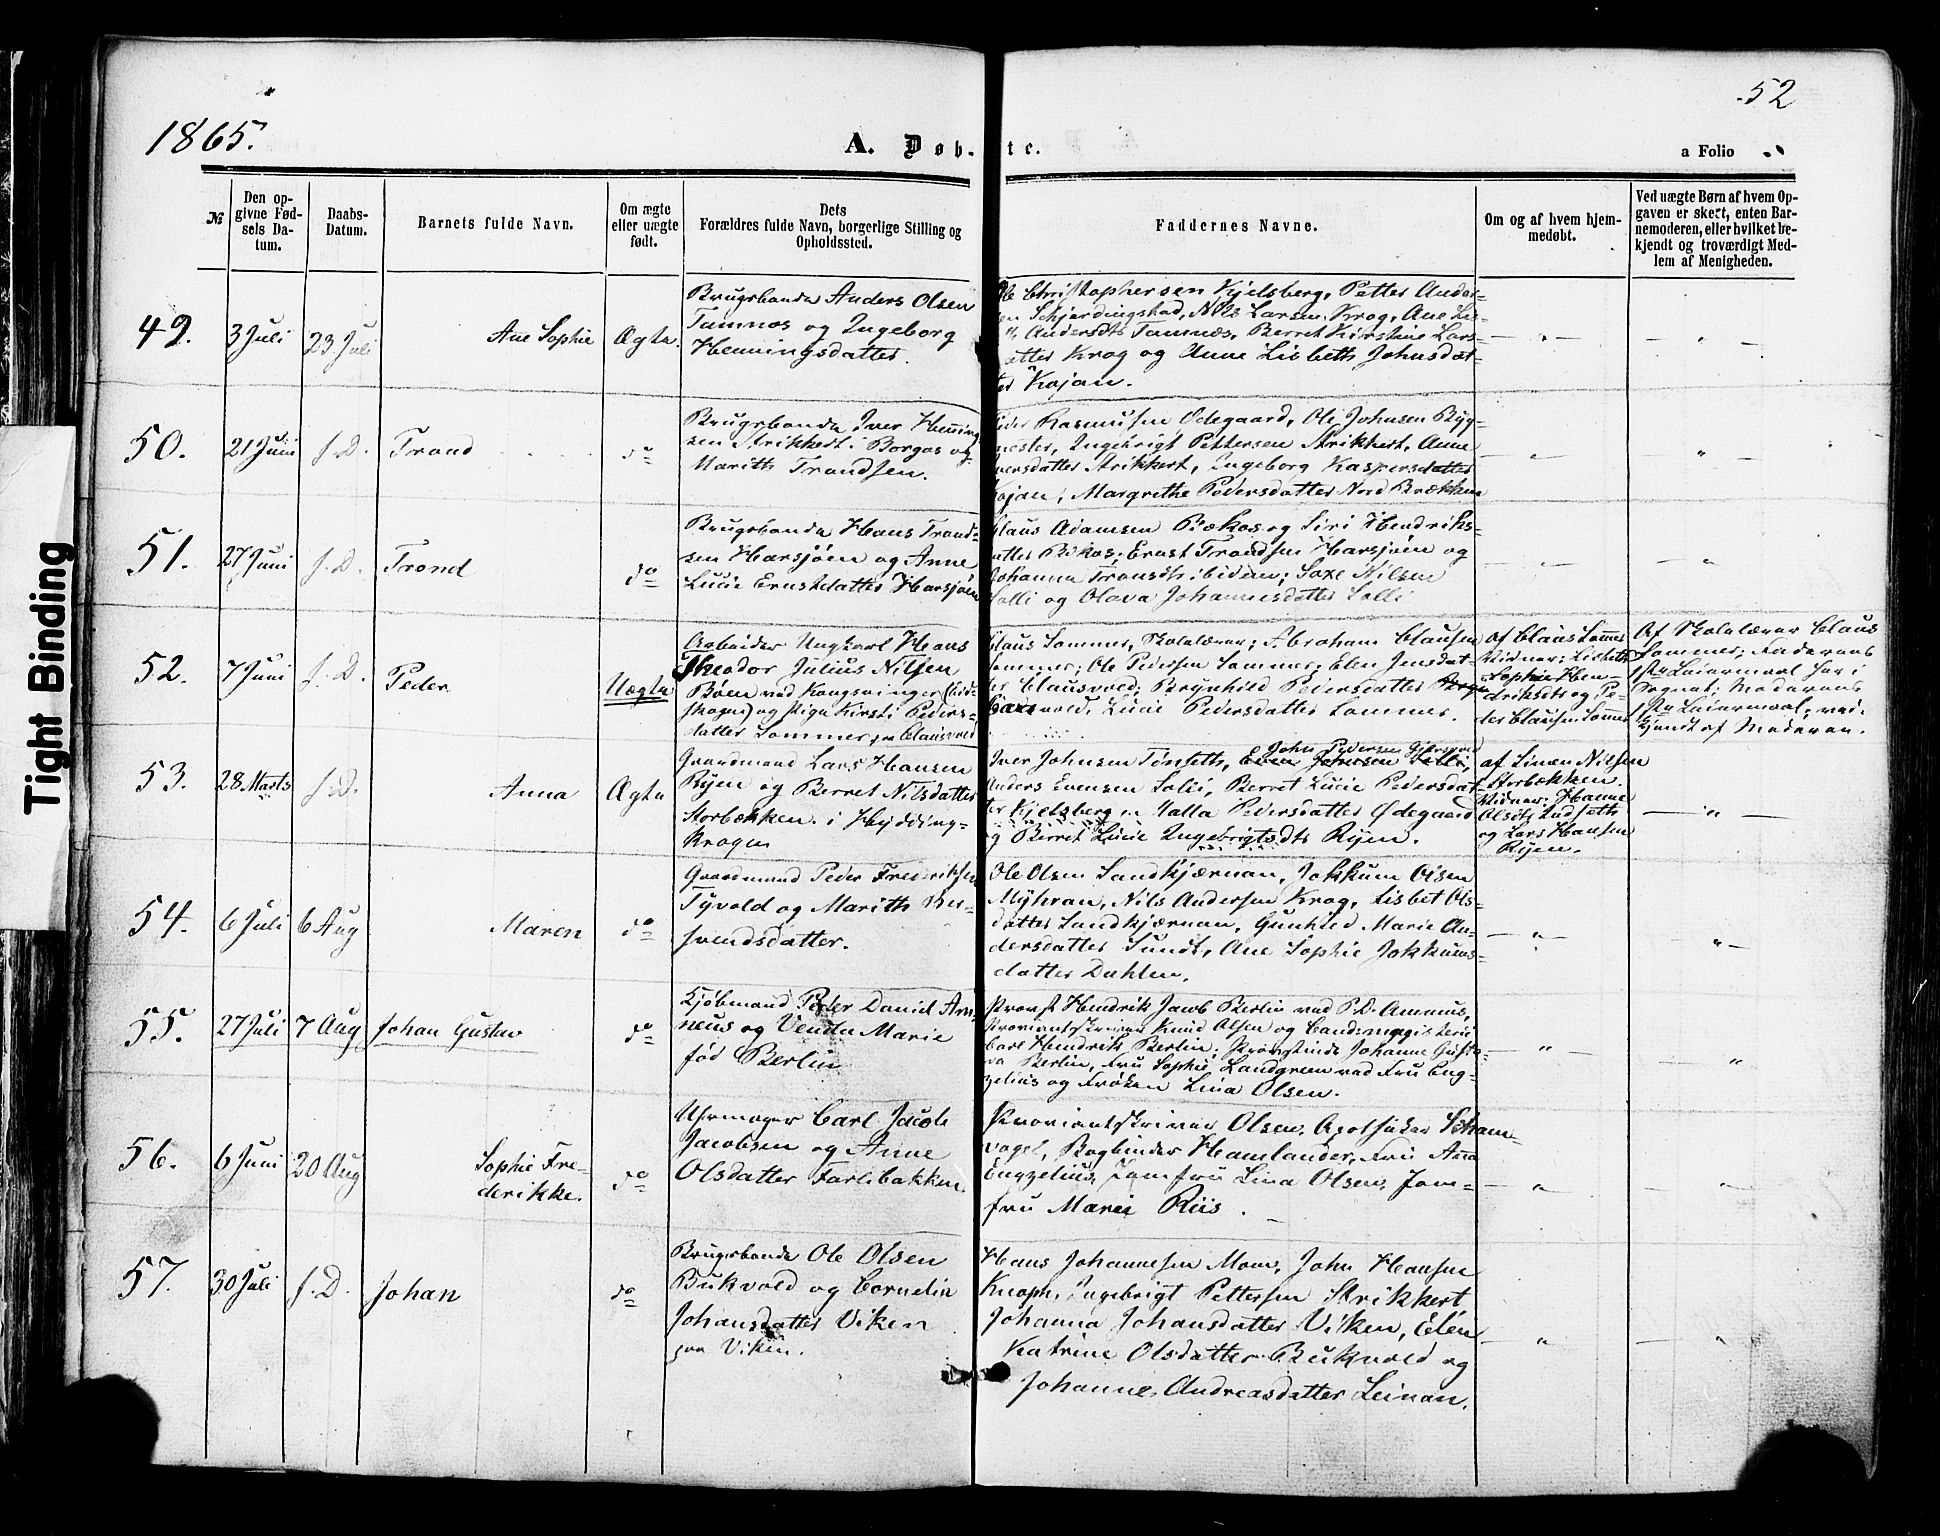 52
1865.
A. Døb-te.
a Folio
№
Den op-
givne Fød-
sels Da-
tum.
Daabs-
Datum.
Barnets fulde Navn.
Om ægte
eller uægte
født.
Dets
Forældres fulde Navn, borgerlige Stilling og
Opholdssted.
Faddernes Navne.
Om og af hvem hjem-
medøbt.
Ved uægte Børn af hvem Op-
gaven er skeet, enten Bar-
nemoderen, eller hvilket be-
kjendt og troværdigt Med-
lem af Menigheden.
49.
3 Juli
23 Juli
Ane Sophie
Ægte.
Brugsbonde Anders Olsen
Tamnæs og Ingeborg
Henningsdatter.
Christophersen Kjelsberg, Petter Ander-
Skjerdingstad, Nils Larsen Krog, Ane Lis-
Andersdtr Tamnæs, Berret Kirstine Lars-
datter Krog og Anne Lisbeth Johnsdat-
ter Kojan.
50.
21 Juni
s. D.
Trond
do
Brugsbonde Iver Henning-
sen Strikkert i Borgos og
Marith Trondsen.
Peder Rasmusen Ødegaard, Ole Johnsen Byg-
mester, Ingebrigt Pettersen Strikkert, Anne
Iversdatter Strikkert, Ingeborg Kaspersdatter
Kojan, Margrethe Pedersdatter Nord Brækken
51.
27 Juni
s. D.
Trond
do
Brugsbonde Hans Trond-
sen Harsjøen og Anne
Lucie Ernstdatter Harsjøen
Claus Adamsen Bækos og Siri Hendriks-
datter Bækos, Ernst Trondsen Harsjøen og
Johanna Tronsdtr ibidem; Saxe Nilsen
Solli og Olava Johannesdatter Solli
52.
7 Juni
s. D.
Peder
Uægte
Arbeider Ungkarl Hans
Theodor Julius Nilsen
Bøen ved Kongsvinger (Eid-
skogen) og Pige Kirsti Peders-
datter Sommer paa Clausvold
Claus Sommer, Skolelærer; Abraham Clausen
Sommer; Ole Pedersen Sommer; Elen Jensdat-
ter Clausvold; Brynhild Pedersdatter
Clausvold, Lucie Pedersdatter Sommer.
af Claus Sommer
Vidner: Lisbeth
Sophie Hen-
driksdtr og Pe-
der Clausen Sommer
Af Skolelærer Claus
Sommer; Faderens
1ste Leiermaal her i
Sognet; Moderens
1ste Leiermaal; ved-
kjendt af Moderen.
53.
28 Marts
s. D.
Anna
Ægte
Gaardmand Lars Hansen
Ryen og Berret Nilsdatter
Storbækken i Hydding-
krogen
Iver Johnsen Tønseth, John Pedersen
Anders Evensen Solli, Berret Lucie Pedersdat-
ter Kjelsberg, Malla Pedersdatter Ødegaard
og Berret Lucie Ingebrigtsdtr Ryen.
af Simen Nilsen
Storbækken.
Vidner: Hanne
Olsdtr
og Lars Hansen
Ryen.
54.
6 Juli
6 Aug
Maren
do
Gaardmand Peder Frederiksen
Tyvold og Marith Ber-
svendsdatter.
Ole Olsen Sandkjærnan, Jokkum Olsen
Myhran, Nils Andersen Krog, Lisbet Ols-
datter Sandkjærnan, Gunhild Marie An-
dersdatter Sundt, Ane Sophie Jokkums-
datter Dahlen.
55.
27 Juli
7 Aug
Johan Gustav
do
Kjøbmand Peder Daniel Am-
neus og Venda Marie
fød Berlin
Provst Hendrik Jacob Berlin ved P. D. Amneus,
Proviantskriver Knud Olsen og Candmagisterii
Carl Hendrik Berlin; Provstinde Johanne Gusta-
va Berlin, Fru Sophie Landgreen ved Fru Eng-
zelius og Frøken Lina Olsen.
56.
6 Juni
20 Aug
Sophie Fre-
derikke.
do
Uhrmager Carl Jacob
Jacobsen og Anne
Olsdatter Farlibakken.
Proviantskriver Olsen, Apotheker Scham-
vogel, Bogbinder Hamlander, Fru Anna
Engzelius, Jomfru Lina Olsen, Jom-
fru Marie Riis.
57.
30 Juli
s. D.
Johan
do
Brugsbonde Ole Olsen
Bukvold og Cornelia
Johansdatter Viken
paa Viken.
Hans Johannesen Moen, John Hansen
Knoph, Ingebrigt Pettersen Strikkert
Johanna Johansdatter Viken, Elen
Katrine Olsdatter Bukvold og
Johanne Andreasdatter Leinan.
Tight Binding